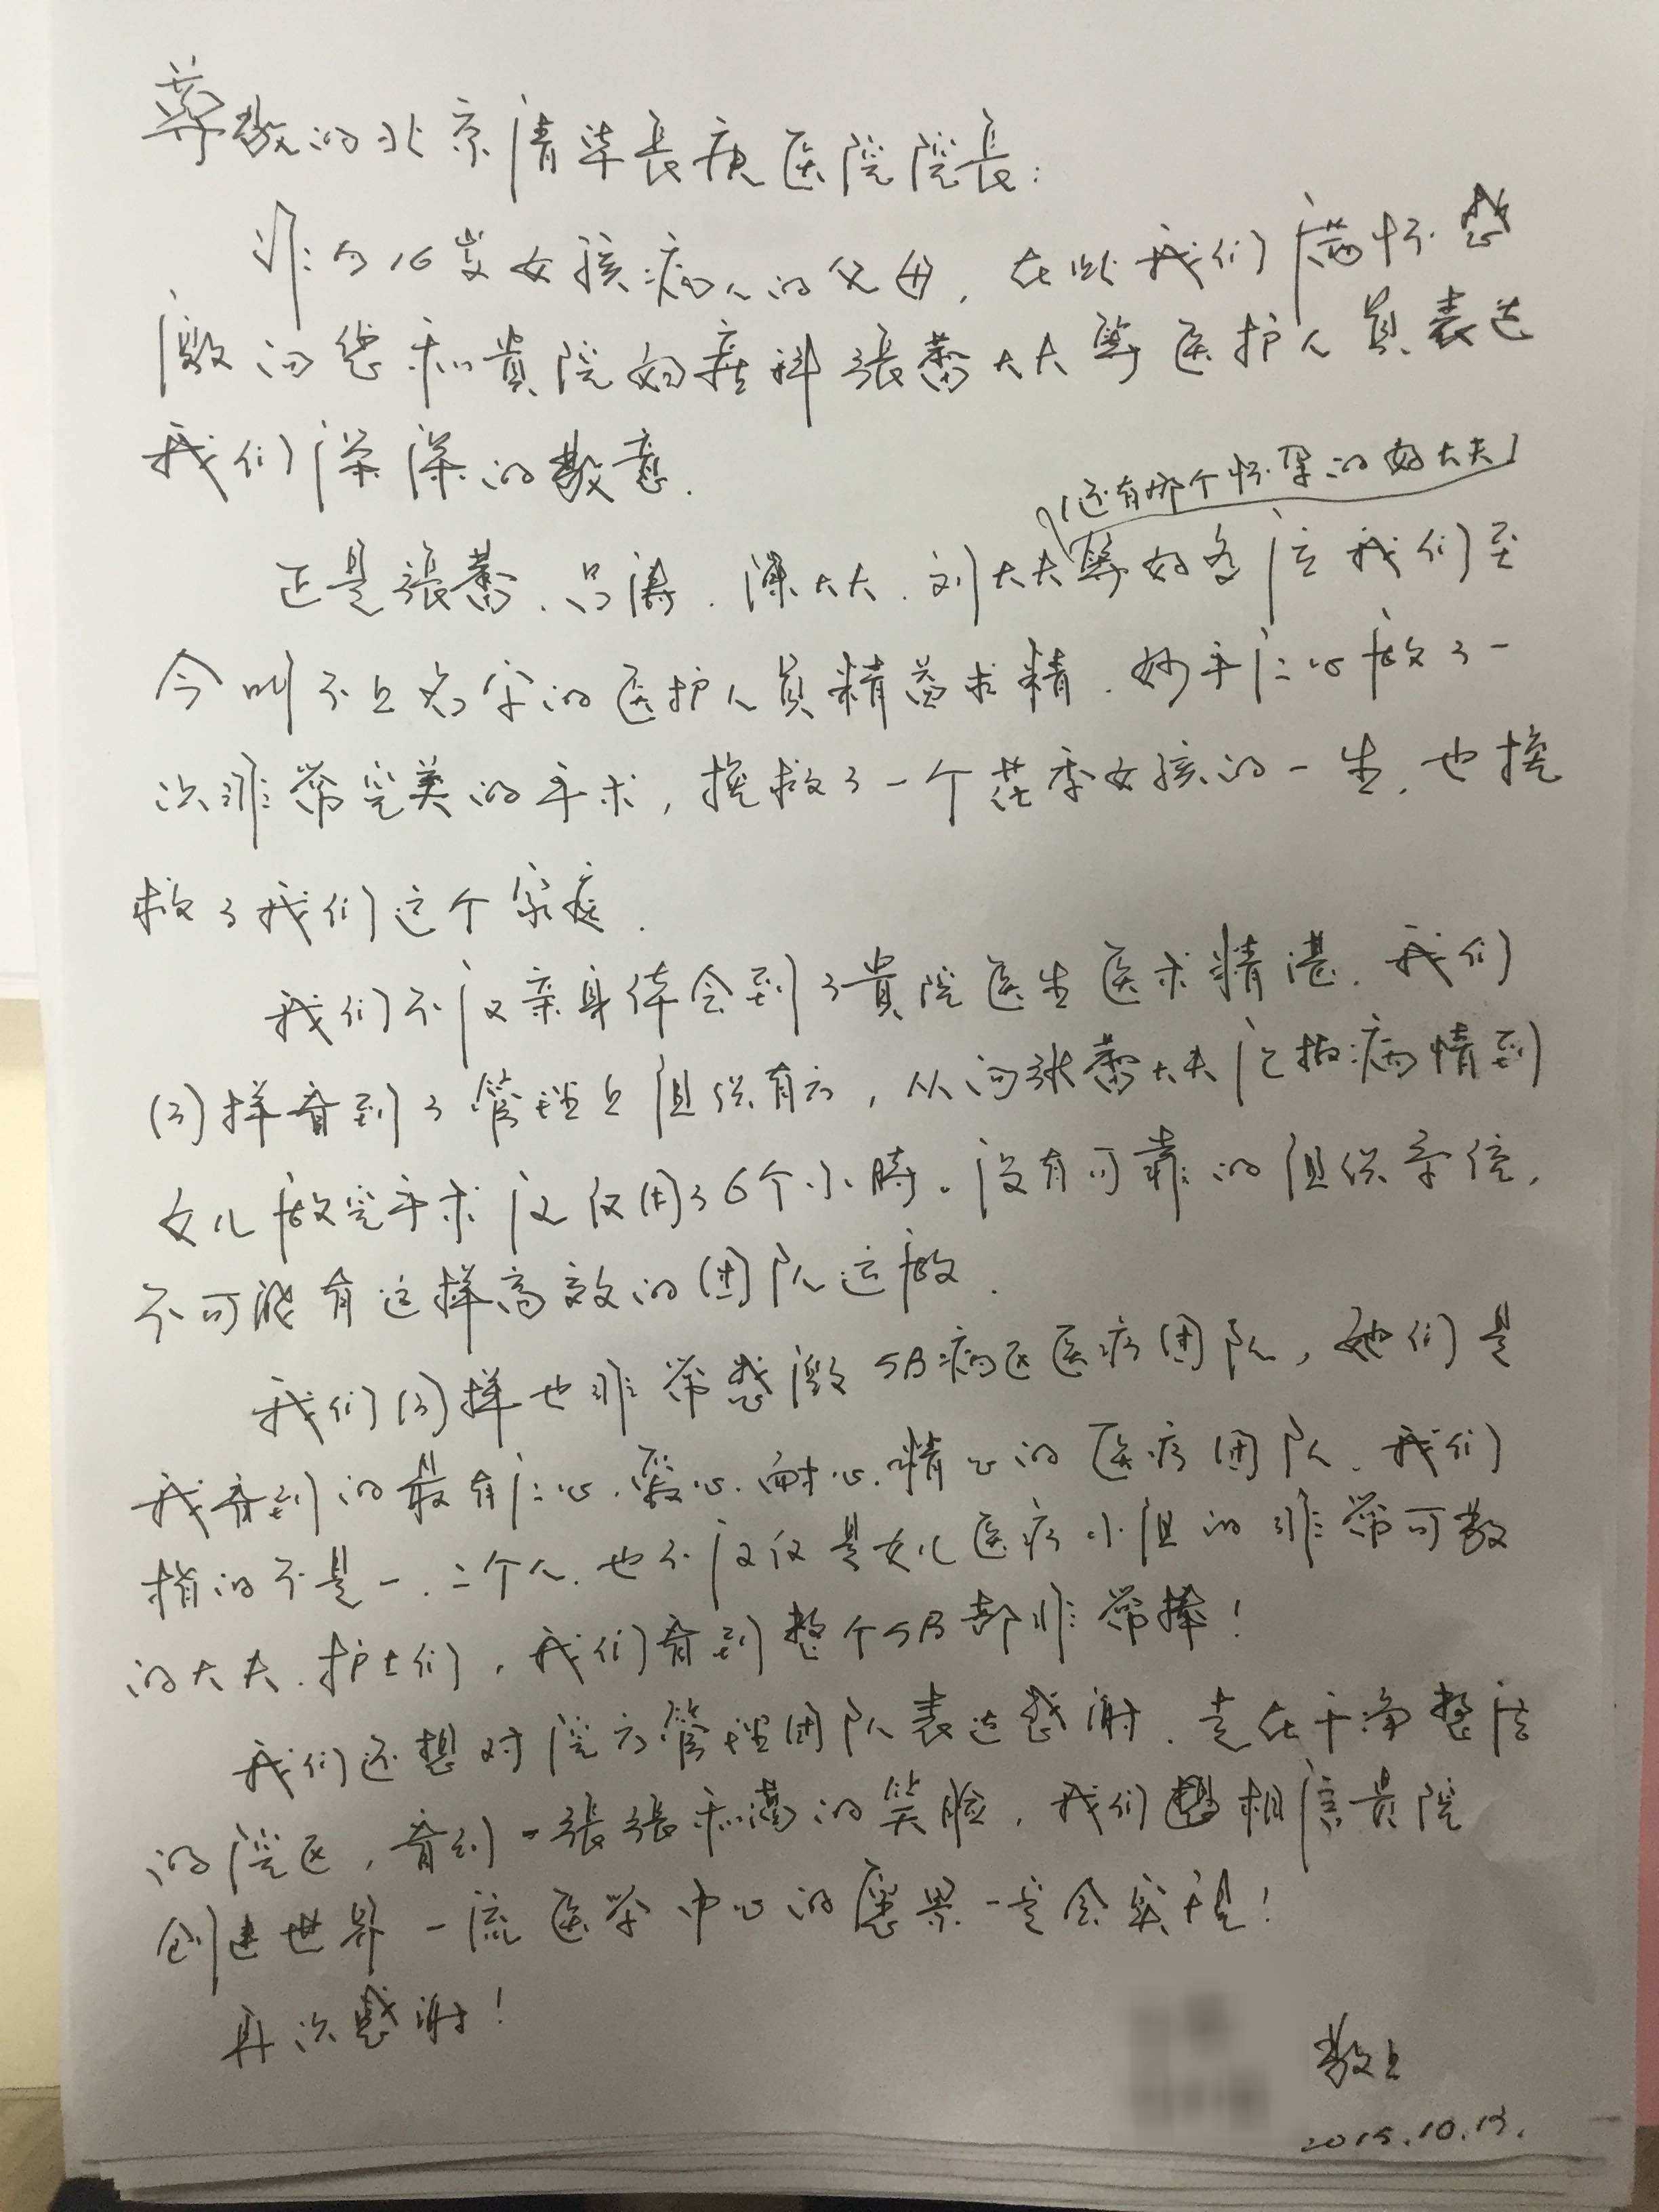 尊敬的北京清华長庚医院院長:
作为16岁女孩病人的父母,在此我们满怀感
激向您和貴院妇産科張蕾大夫等医护人員表达
我们深深的敬意.
(还有那个怀孕的好大夫)
正是張蕾、吕涛、陳大夫、刘大夫等好多位我们至
今叫不上名字的医护人員精益求精、妙手仁心做了一
次非常完美的手术,挽救了一个花季女孩的一生,也挽
救了我们这个家庭.
我们不仅亲身体会到了貴院医生医术精湛,我们
同样看到了管理上組织有方,从向张蕾大夫汇报病情到
女儿做完手术仅仅用了6个小時。没有可靠的組织系统,
不可能有这样高效的团队运做.
我们同样也非常感激5B病区医疗团队,她们是
我看到的最有仁心、爱心、耐心、精心的医疗团队,我们
指的不是一、二个人,也不仅仅是女儿医疗小组的非常可敬
的大夫、护士们,我们看到整个5B都非常棒!
我们还想对院方管理团队表达感謝,走在干净整洁
的院区,看到一張張和藹的笑脸,我们相信貴院
创建世界一流医学中心的愿景一定会实现!
再次感谢!
敬上
2015.10.13.